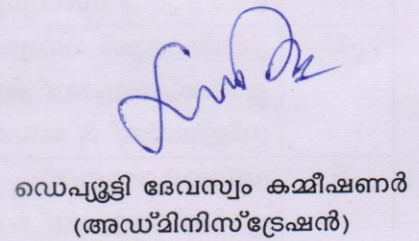 ഡെപ്യൂട്ടി ദേവസ്വം കമ്മീഷണർ
(അഡ്മിനിസ്ട്രേഷൻ)